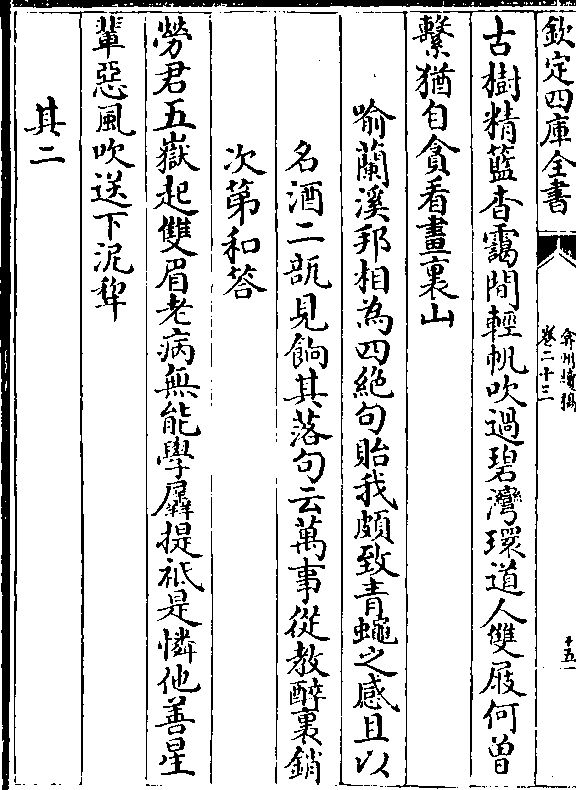 欽定四庫全書
弇州續稿
卷二十二
十五
古樹精籃杳靄間輕帆吹過碧灣環道人雙屐何曾
繫猶自貪看畫裏山
喻蘭溪邦相為四絶句貽我頗致青蠅之感且以
名酒二瓿見餉其落句云萬事從教醉裏銷
次第和答
勞君五嶽起雙眉老病無能學羼提祇是憐他善星
輩惡風吹送下泥犂
其二